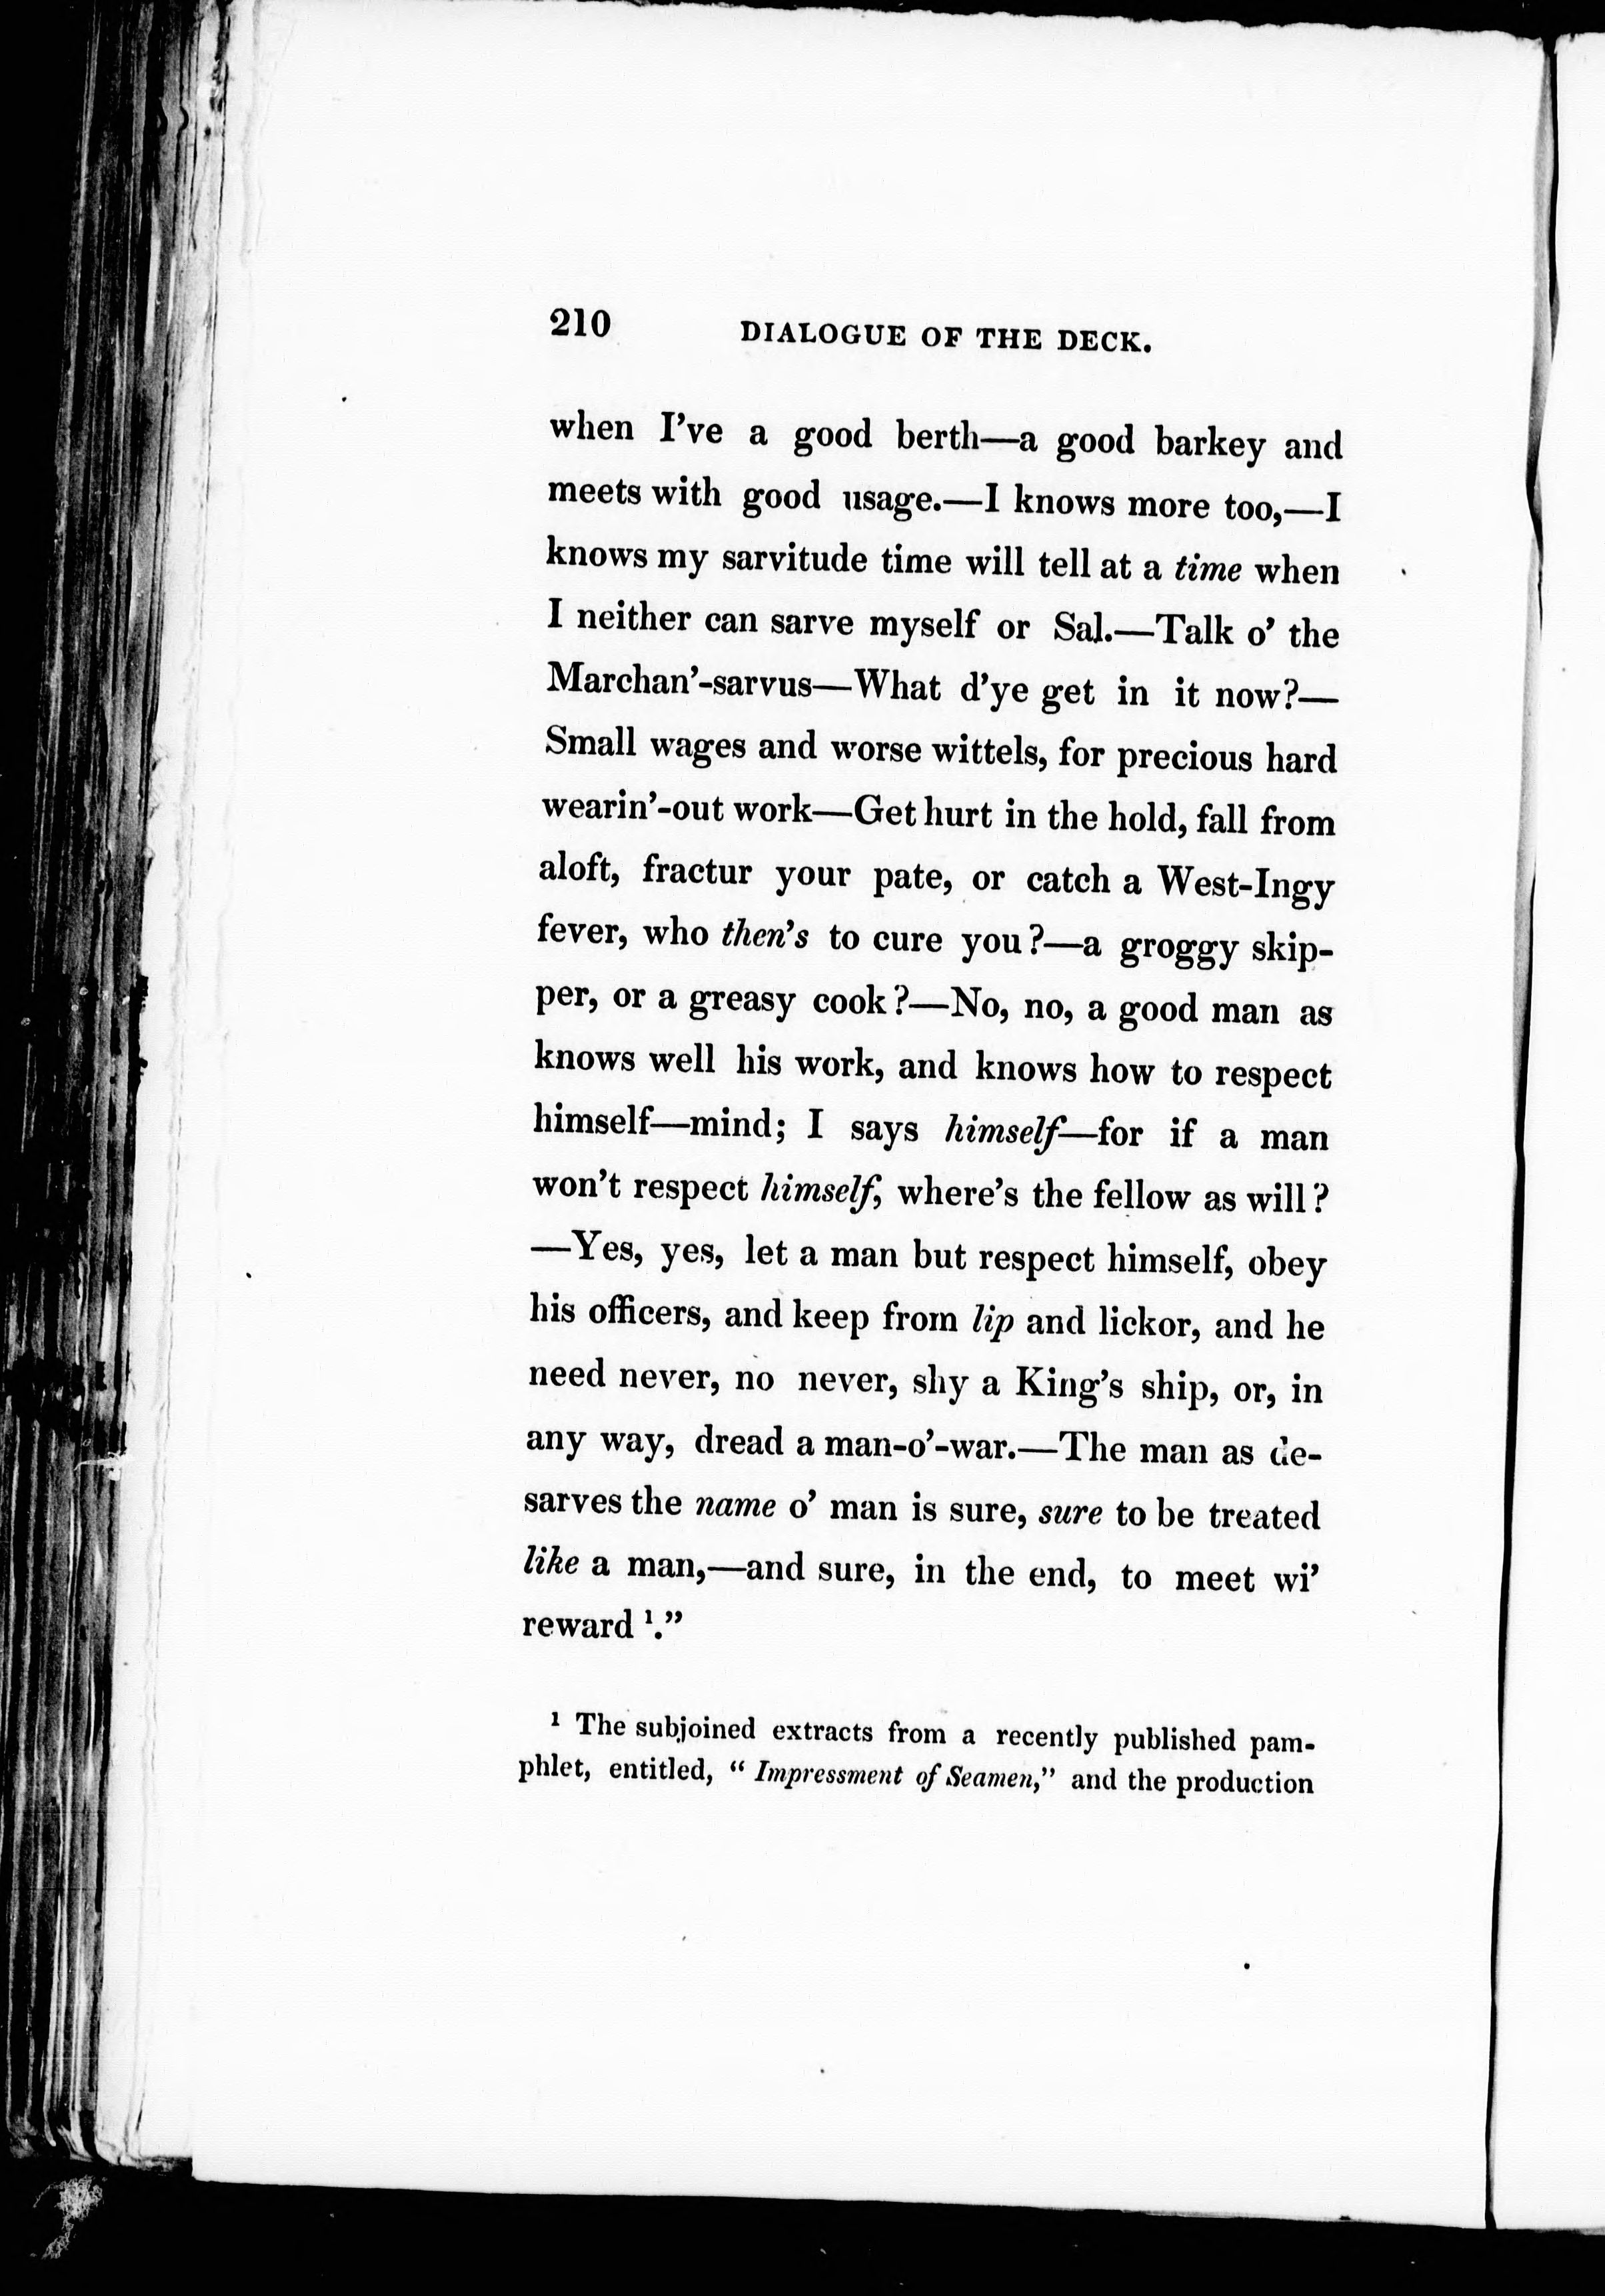 210 DIALOGUE OF THE DECK.
when I've a good berth—a good barkey and
meets with good usage.—I knows more too,—I
knows my sarvitude time will tell at a time when
I neither can sarve myself or Sal.—Talk o' the
Marchan'-sarvus—What d'ye get in it now?—
Small wages and worse wittels, for precious hard
wearin'-out work—Get hurt in the hold, fall from
aloft, fractur your pate, or catch a West-Ingy
fever, who then's to cure you?—a groggy skip-
per, or a greasy cook?—No, no, a good man as
knows well his work, and knows how to respect
himself—mind; I says himself—for if a man
won't respect himself, where's the fellow as will?
—Yes, yes, let a man but respect himself, obey
his officers, and keep from lip and lickor, and he
need never, no never, shy a King's ship, or, in
any way, dread a man-o'-war.—The man as de-
sarves the name o' man is sure, sure to be treated
like a man,—and sure, in the end, to meet wi'
reward ¹."
¹ The subjoined extracts from a recently published pam-
phlet, entitled, "Impressment of Seamen," and the production